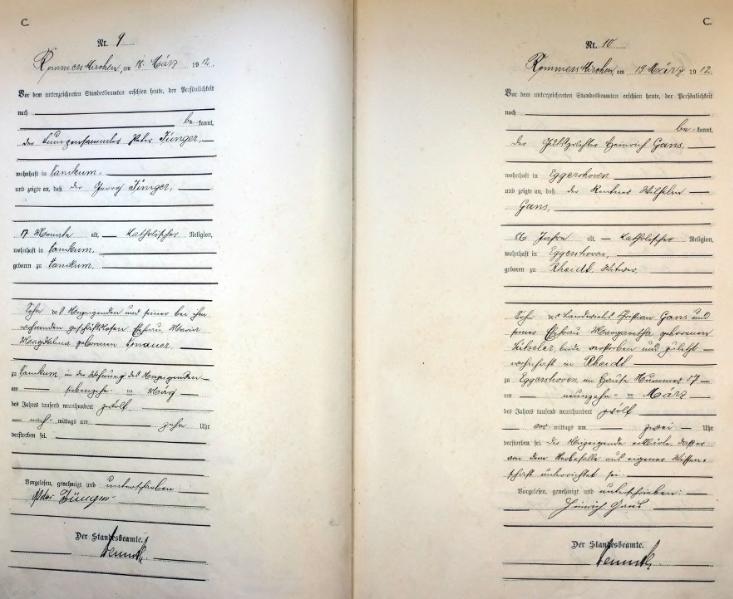 C.
Nr. 9
Rommerskirchen, am 18. März 1912.
Vor dem unterzeichneten Standesbeamten erschien heute, der Persönlichkeit
nach
be kannt,
der Peter Jünger,
wohnhaft in Eanikum.
und zeigte an, daß der Georg Jünger,
17 Monate alt, katholischer Religion,
wohnhaft in Eanikum,
geboren zu Eanikum,
Sohn des Anzeigenden und seiner bei ihm
wohnenden geschäftslosen Ehefrau Maria
Magdalena geborenen
zu Eanikum in der Wohnung des Anzeigenden
am siebenzehn ten März
des Jahres tausend neunhundert zwölf
nach mittags um zehn Uhr
verstorben sei.
Vorgelesen, genehmigt und unterschrieben
Peter Jünger
Der Standesbeamte.
C.
Nr. 10
Rommerskirchen, am 19 März 1912.
Vor dem unterzeichneten Standesbeamten erschien heute, der Persönlichkeit
nach
be kannt,
der Heinrich Gans,
wohnhaft in Eggershoven
und zeigte an, daß der Rentner Wilhelm
Gans,
86 Jahre alt, katholischer Religion,
wohnhaft in Eggershoven,
geboren zu Rheidt, Witwer
Sohn des Landwirts Christian Gans und
seiner Ehefrau Margaretha geborenen
beide verstorben und zuletzt
wohnhaft in Rheidt
zu Eggershoven im Hause Nummer 17
am neunzehn ten März
des Jahres tausend neunhundert zwölf
vor mittags um zwei Uhr
verstorben sei. Der Anzeigende erklärte, daß er
von dem Sterbefalle aus eigener Wissen-
schaft unterrichtet sei
Vorgelesen, genehmigt und unterschrieben:
Heinrich Gans
Der Standesbeamte.